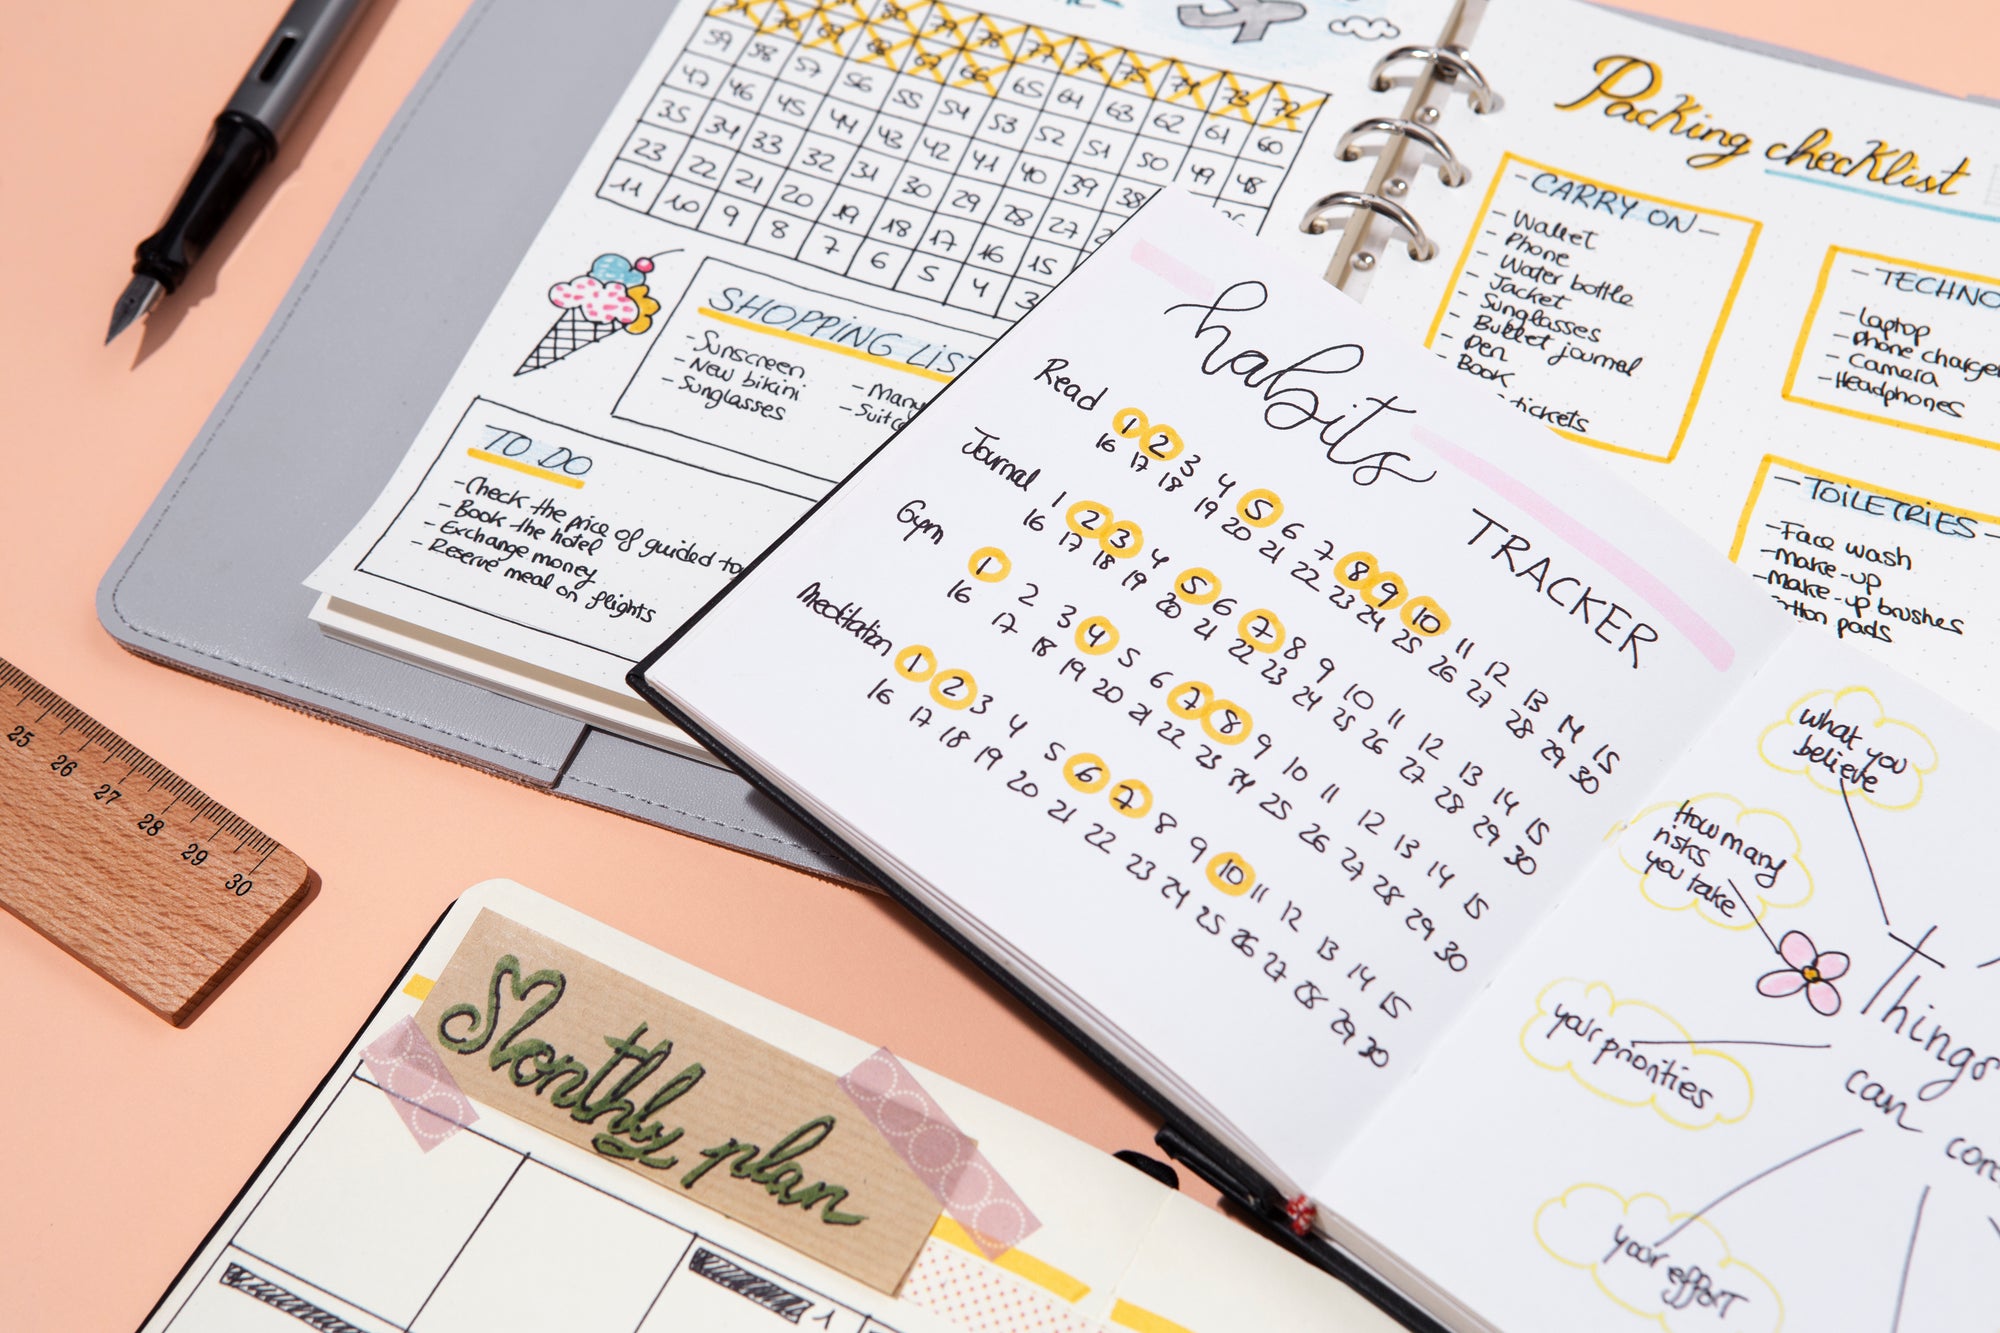 80 79 78 77 76 75 74 73 72
70 69 68 67 66 65 64 63 62 61 60
59 58 57 56 55 54 53 52 51 50 49 48
47 46 45 44 43 42 41 40 39 38
35 34 33 32 31 30 29 28 27
23 22 21 20 19 18 17 16 15
11 10 9 8 7 6 5 4 3
SHOPPING LIST
- Sunscreen
- New bikini
- Sunglasses
TO DO
- Check the price of guided
- Book the hotel
- Exchange money
- Reserve meal on flights
Packing checklist
- CARRY ON -
- Wallet
- Phone
- Water bottle
- Jacket
- Sunglasses
- Bullet journal
- Pen
- Book
- tickets
- TECHNO
- Laptop
- Phone charger
- Camera
- Headphones
- TOILETRIES -
- Face wash
- Make-up
- Make-up brushes
pads
habits
TRACKER
Read 1 2 3 4 5 6 7 8 9 10 11 12 13 14 15
16 17 18 19 20 21 22 23 24 25 26 27 28 29 30
Journal 1 2 3 4 5 6 7 8 9 10 11 12 13 14 15
16 17 18 19 20 21 22 23 24 25 26 27 28 29 30
Gym 1 2 3 4 5 6 7 8 9 10 11 12 13 14 15
16 17 18 19 20 21 22 23 24 25 26 27 28 29 30
Meditation 1 2 3 4 5 6 7 8 9 10 11 12 13 14 15
16 17 18 19 20 21 22 23 24 25 26 27 28 29 30
what you
believe
How many
risks
you take
your priorities
your effort
Things
can
25 26 27 28 29 30
Monthly plan
1